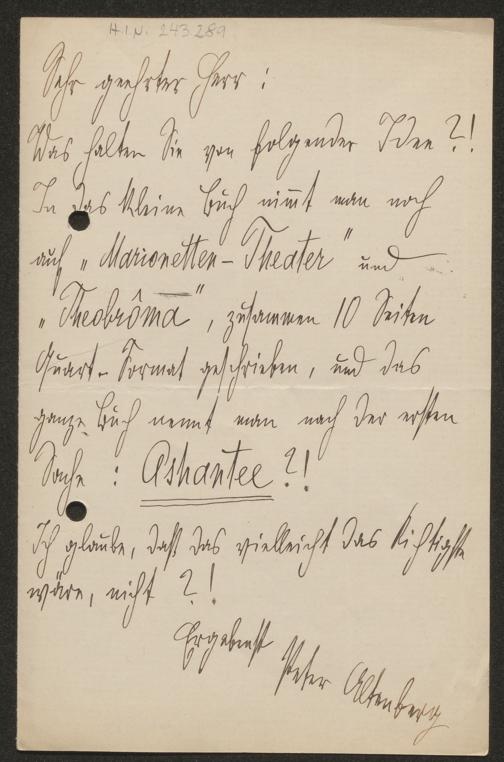 H.I.N. 243289
Sehr geehrter Herr :
Was halten Sie von folgender Idee ?!
In das kleine Buch nim̄t man noch
auf „Marionetten-Theater" und
„Theobrôma", zusammen 10 Seiten
Quart-Format geschrieben, und das
ganze Buch nennt man nach der ersten
Sache : Ashantee ?!
Ich glaube, daß das vielleicht das Richtigste
wäre, nicht ?!
Ergebenst
Peter Altenberg